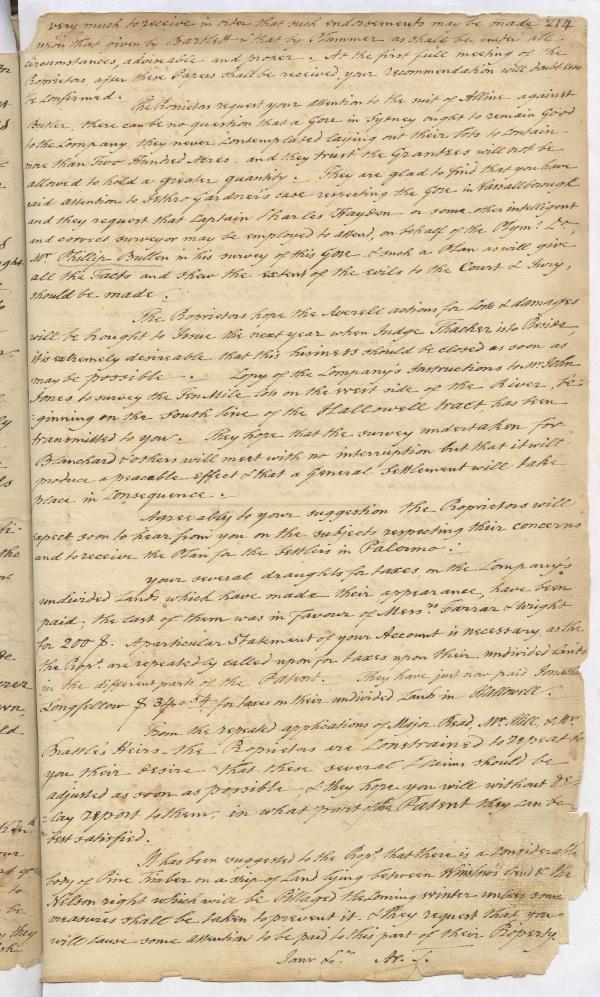 very much to receive in order that such endorsements may be made 214
upon that given by Bartlett & that by Plummer as shall be under all
circumstances, adviseable and proper. At the first full meeting of the
Proprietors after these Papers shall be received, your recommendation will doubtless
be Confirmed.
The Proprietors request your attention to the suit of Alline against
Butler, there can be no question that a Gore in Sydney ought to remain Good
to the Company, they never Contemplated laying out their Lots to Contain
more than Two Hundred Acres - and they trust the Grantees will not be
allowed to hold a greater quantity. They are glad to find that you have
paid attention to Gardner's case respecting the Gore in Vassalborough
and they request that Captain Charles Hayden or some other intelligent
and correct surveyor may be employed to attend, on behalf of the Plymo
Mr Phillip Bullen in his survey of this Gore & such a Plan as will give
all the Facts and shew the extent of the evils to the Court & Jury,
should be made.
The Proprietors hope the Averell actions for Lots & damages
will be brought to Issue the next year when Judge Thacker is to Preside,
it is extremely desireable that this business should be closed as soon as
may be possible. Copy of the Company's Instructions to Mr John
Jones to survey the Ten Mile Lots on the west side of the River, be-
-ginning on the South line of the Hallowell tract, has been
transmitted to you. They hope that the survey undertaken for
Blanchard & others will meet with no interruption but that it will
produce a peacable effect & that a General Settlement will take
place in Consequence.
Agreeably to your suggestion the Proprietors will
expect soon to hear from you on the subjects respecting their concerns
and to receive the Plan for the Settlers in Palermo.
Your several draughts for taxes on the Company's
undivided Lands which have made their appearance, have been
paid; the last of them was in Favour of Messrs & Wright
for 200 $. A particular Statement of your Account is necessary as the
the Propr. are repeatedly called upon for taxes upon their undivided Lands
in the different parts of the Patent. They have just now paid Jonathan
Longfellow $ for taxes on their undivided Lands in Hallowell.
From the repeated applications of Major Read, Mr. Hill, & Mr.
Brattle's Heirs - the Proprietors are Constrained to repeat to
you their desire that these several Claims should be
adjusted as soon as possible & they hope you will without de-
-lay report to them, in what part of the Patent they can be
best satisfied.
It has been suggested to the Propr. that there is a Considerable
body of Pine Timber on a strip of Land lying between Winslow's Land & the
Nelson right which will be Pillaged the Coming winter unless some
measures shall be taken to prevent it. & they request that you
will cause some attention to be paid to this part of their Property.
I am &c. Ar. T.